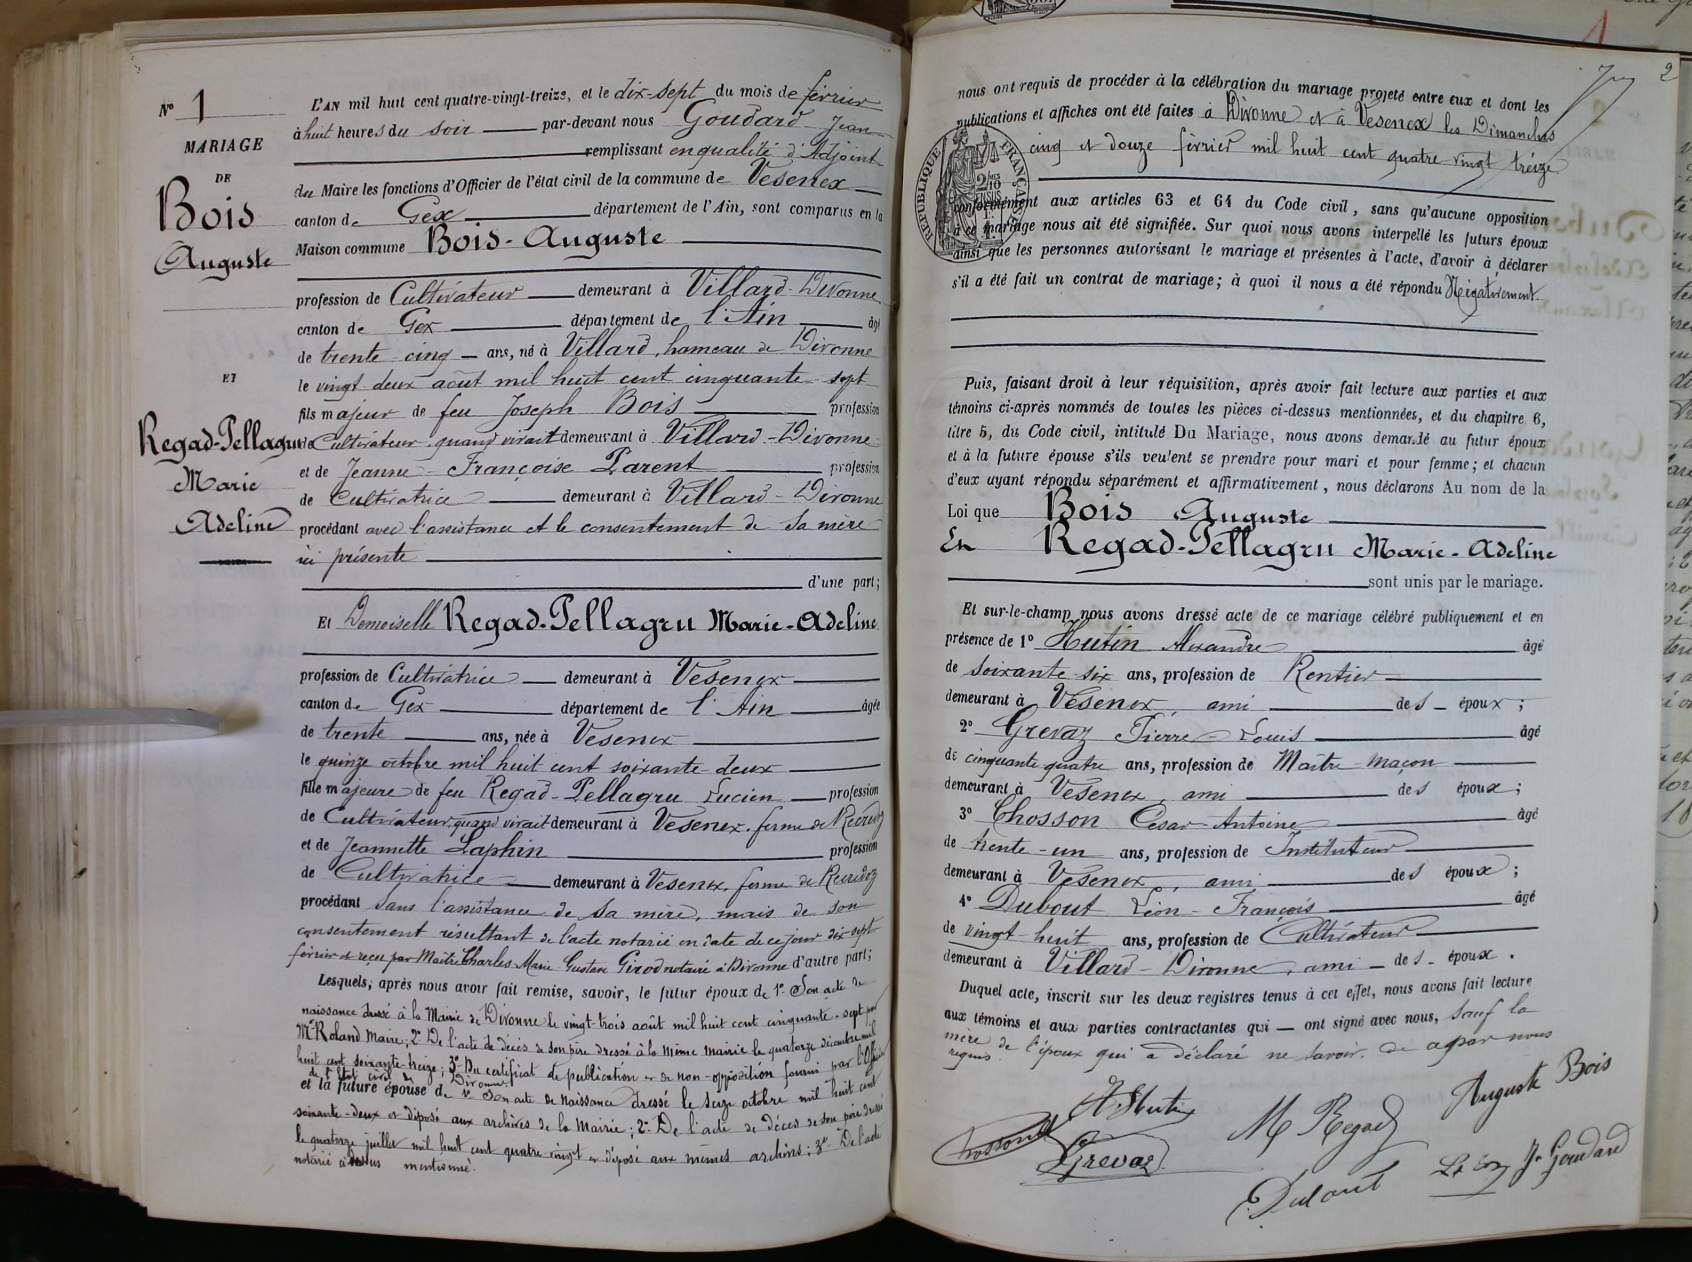 N° 1
MARIAGE
DE
Bois
Auguste
ET
Regad-Pellagru
Marie
Adeline
L'AN mil huit cent quatre-vingt-treize, et le dix-sept du mois de février
à huit heures du soir par-devant nous Goudard Jean
remplissant en qualité d'Adjoint
du Maire les fonctions d'Officier de l'état civil de la commune de Vesenex
canton de Gex département de l'Ain, sont comparus en la
Maison commune Bois-Auguste
profession de Cultivateur demeurant à Villard-Divonne
canton de Gex département de l'Ain âgé
de trente cinq ans, né à Villard, hameau de Divonne
le vingt-deux août mil huit cent cinquante-sept
fils majeur de feu Joseph Bois profession
de Cultivateur quand vivait demeurant à Villard-Divonne
et de Jeanne-Françoise Parent profession
de Cultivatrice demeurant à Villard-Divonne
procédant avec l'assistance et le consentement de sa mère
ici présente
d'une part;
Et Demoiselle Regad-Pellagru Marie-Adeline
profession de Cultivatrice demeurant à Vesenex
canton de Gex département de l'Ain âgée
de trente ans, née à Vesenex
le quinze octobre mil huit cent soixante-deux
fille majeure de feu Regad-Pellagru Lucien profession
de Cultivateur quand vivait demeurant à Vesenex, ferme de
et de Jeannette Laphin profession
de Cultivatrice demeurant à Vesenex, ferme de
procédant sans l'assistance de sa mère, mais de son
consentement résultant de l'acte notarié en date de ce jour dix-sept
février et reçu par Maître Charles-Marie Gustave Girod notaire à Divonne d'autre part;
Lesquels, après nous avoir fait remise, savoir, le futur époux de 1° Son acte de
naissance dressé à la Mairie de Divonne le vingt-trois août mil huit cent cinquante-sept par
Mr Roland Maire; 2° De l'acte de décès de son père dressé à la même mairie le quatorze décembre mil
huit cent soixante-treize; 3° Du certificat de publication et de non-opposition fourni par l'Officier
de l'état civil de Divonne.
et la future épouse de 1° Son acte de naissance dressé le seize octobre mil huit cent
soixante-deux et déposé aux archives de la Mairie; 2° De l'acte de décès de son père dressé
le quatorze juillet mil huit cent quatre-vingt et déposé aux mêmes archives; 3° De l'acte
notarié ci-dessus mentionné.
2
nous ont requis de procéder à la célébration du mariage projeté entre eux et dont les
publications et affiches ont été faites à Divonne et à Vesenex les Dimanches
cinq et douze février mil huit cent quatre-vingt treize
RÉPUBLIQUE FRANÇAISE
2/10
conformément aux articles 63 et 64 du Code civil, sans qu'aucune opposition
à ce mariage nous ait été signifiée. Sur quoi nous avons interpellé les futurs époux
ainsi que les personnes autorisant le mariage et présentes à l'acte, d'avoir à déclarer
s'il a été fait un contrat de mariage; à quoi il nous a été répondu Négativement
Puis, faisant droit à leur réquisition, après avoir fait lecture aux parties et aux
témoins ci-après nommés de toutes les pièces ci-dessus mentionnées, et du chapitre 6,
titre 5, du Code civil, intitulé Du Mariage, nous avons demandé au futur époux
et à la future épouse s'ils veulent se prendre pour mari et pour femme; et chacun
d'eux ayant répondu séparément et affirmativement, nous déclarons Au nom de la
Loi que Bois Auguste
Et Regad-Pellagru Marie-Adeline
sont unis par le mariage.
Et sur-le-champ nous avons dressé acte de ce mariage célébré publiquement et en
présence de 1° Hutin Alexandre âgé
de soixante-six ans, profession de Rentier
demeurant à Vesenex, ami des époux;
2° Grevaz Pierre-Louis âgé
de cinquante quatre ans, profession de Maître-maçon
demeurant à Vesenex, ami des époux;
3° Chosson César-Antoine âgé
de trente-un ans, profession de Instituteur
demeurant à Vesenex, ami des époux;
4° Dubout Léon-François âgé
de vingt-huit ans, profession de Cultivateur
demeurant à Villard-Divonne, ami des époux.
Duquel acte, inscrit sur les deux registres tenus à cet effet, nous avons fait lecture
aux témoins et aux parties contractantes qui ont signé avec nous, sauf la
mère de l'époux qui a déclaré ne savoir, de ce par nous
requis.
A. Hutin
M Regad
Auguste Bois
Chosson
Grevaz
Dubout Léon
J. Goudard